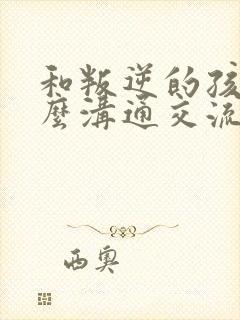 和叛逆的孩
麼溝通交流
西奧